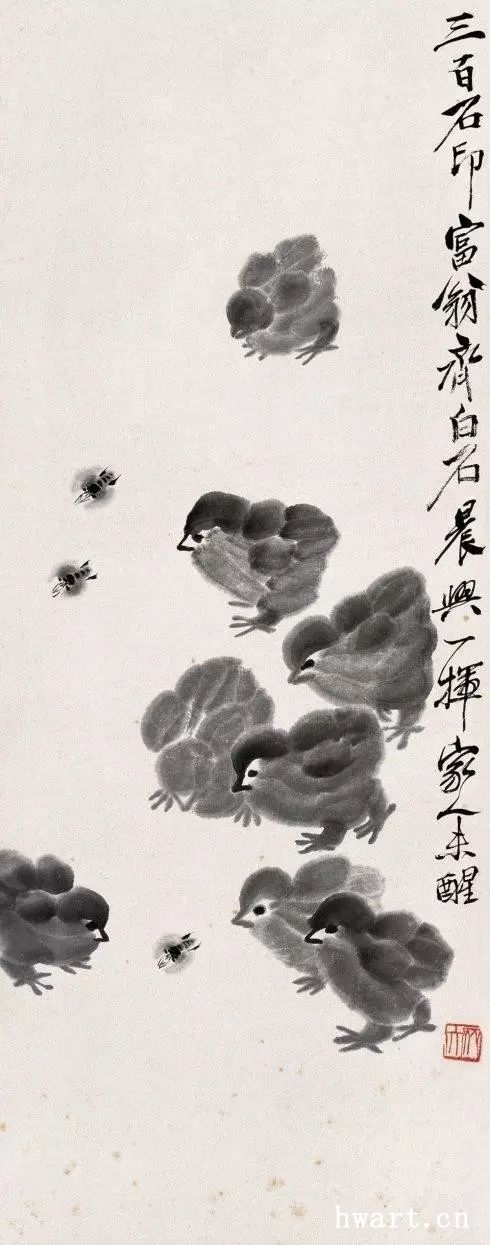 三百石印富翁齊白石晨興一揮家人未醒
hwart.cn